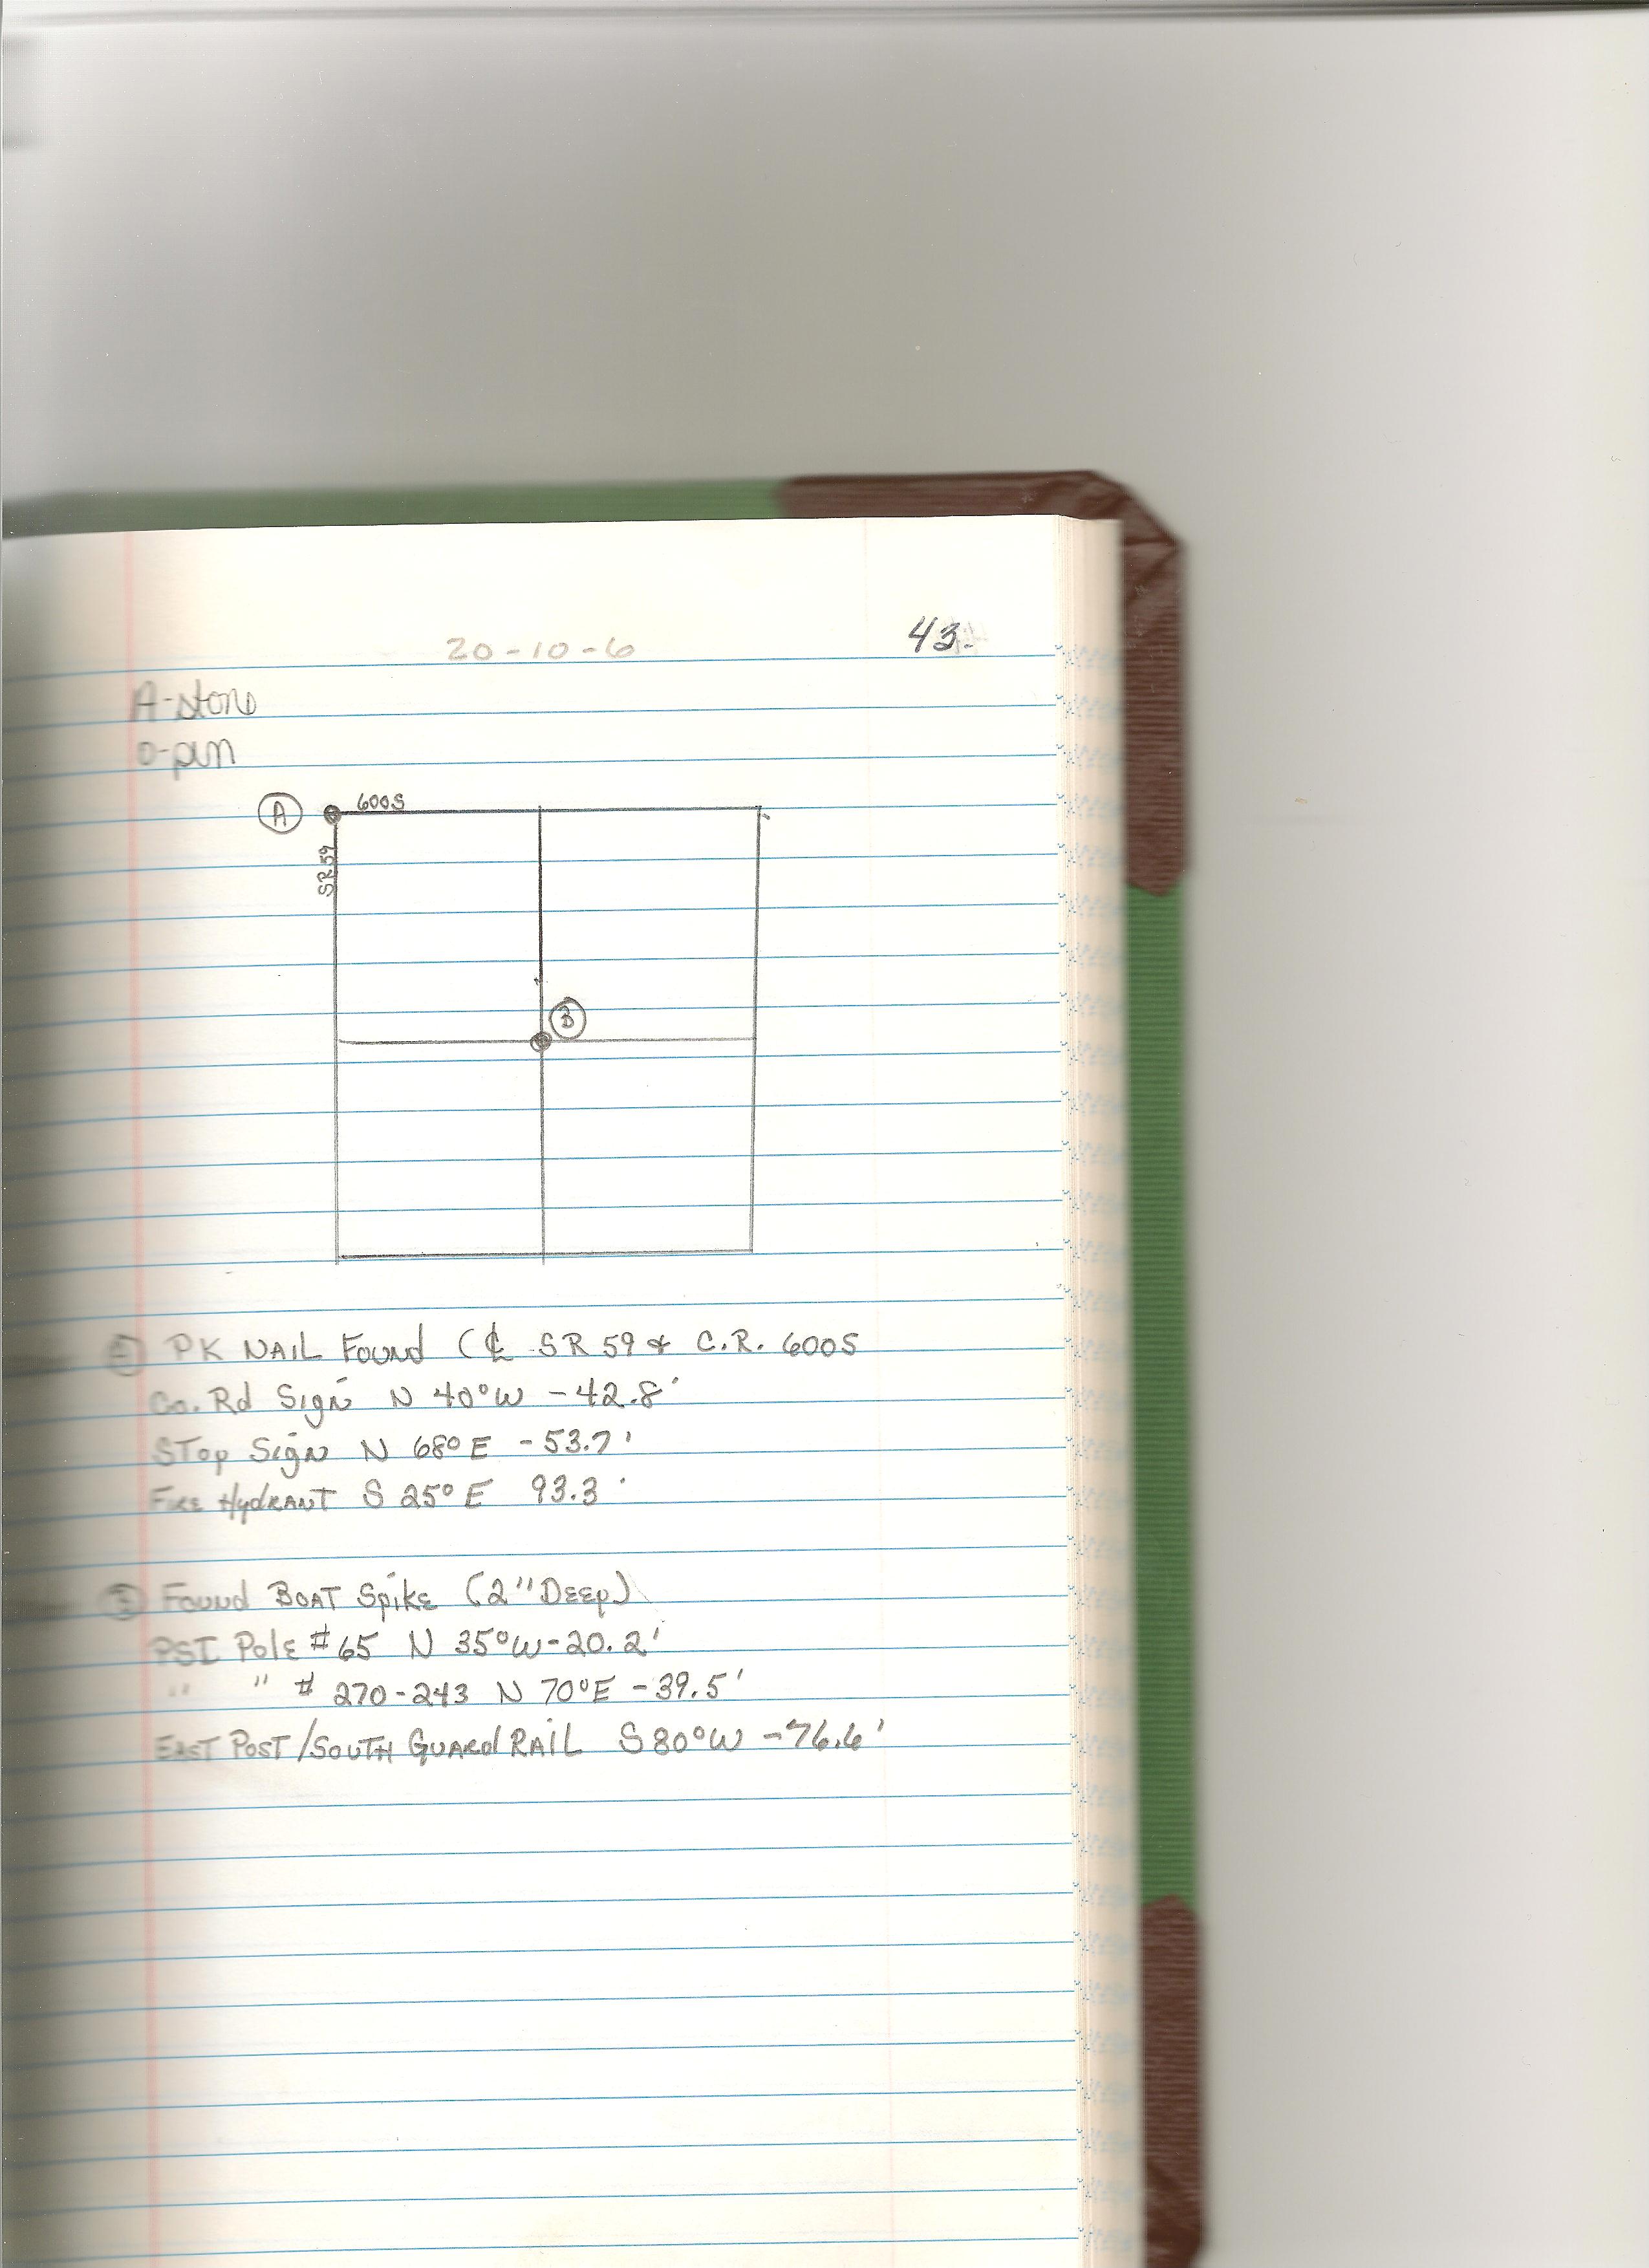 20-10-6
43.
A-stone
O-pin
A
600S
SR 59
B
PK NAIL Found (℄ SR 59 & C.R. 600S
Co. Rd Sign N 40°W -42.8'
STop Sign N 68° E -53.7'
FIRE HydRANT S 25° E 93.3'
Found BOAT Spike (2" Deep)
PSI Pole #65 N 35°W-20.2'
" " # 270-243 N 70°E -39.5'
EAST POST/SOUTH GUARd RAIL S 80°W -76.6'